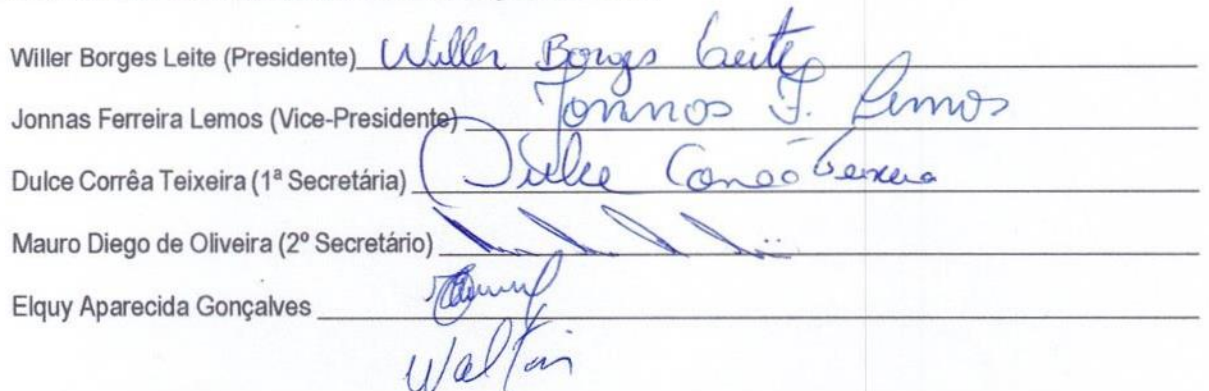 Willer Borges Leite (Presidente) Willer Borges Leite
Jonnas Ferreira Lemos (Vice-Presidente) Jonnas F. Lemos
Dulce Corrêa Teixeira (1ª Secretária) Dulce Corrêa Teixeira
Mauro Diego de Oliveira (2º Secretário)
Elquy Aparecida Gonçalves